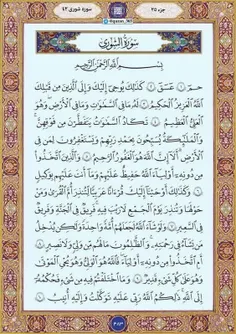 جزء ۲۵
سورة شوری ۴۲
سُورَةُ الشُّورَىٰ
بِسْمِ اللَّهِ الرَّحْمَٰنِ الرَّحِيمِ
حمٓ ۝ عٓسٓقٓ ۝ كَذَٰلِكَ يُوحِىٓ إِلَيْكَ وَإِلَى ٱلَّذِينَ مِن قَبْلِكَ
ٱللَّهُ ٱلْعَزِيزُ ٱلْحَكِيمُ ۝ لَهُۥ مَا فِى ٱلسَّمَٰوَٰتِ وَمَا فِى ٱلْأَرْضِ وَهُوَ
ٱلْعَلِىُّ ٱلْعَظِيمُ ۝ تَكَادُ ٱلسَّمَٰوَٰتُ يَتَفَطَّرْنَ مِن فَوْقِهِنَّ
وَٱلْمَلَٰٓئِكَةُ يُسَبِّحُونَ بِحَمْدِ رَبِّهِمْ وَيَسْتَغْفِرُونَ لِمَن فِى
ٱلْأَرْضِ أَلَآ إِنَّ ٱللَّهَ هُوَ ٱلْغَفُورُ ٱلرَّحِيمُ ۝ وَٱلَّذِينَ ٱتَّخَذُوا۟
مِن دُونِهِۦٓ أَوْلِيَآءَ ٱللَّهُ حَفِيظٌ عَلَيْهِمْ وَمَآ أَنتَ عَلَيْهِم بِوَكِيلٍ
۝ وَكَذَٰلِكَ أَوْحَيْنَآ إِلَيْكَ قُرْءَانًا عَرَبِيًّا لِّتُنذِرَ أُمَّ ٱلْقُرَىٰ وَمَنْ
حَوْلَهَا وَتُنذِرَ يَوْمَ ٱلْجَمْعِ لَا رَيْبَ فِيهِ فَرِيقٌ فِى ٱلْجَنَّةِ وَفَرِيقٌ
فِى ٱلسَّعِيرِ ۝ وَلَوْ شَآءَ ٱللَّهُ لَجَعَلَهُمْ أُمَّةً وَٰحِدَةً وَلَٰكِن يُدْخِلُ
مَن يَشَآءُ فِى رَحْمَتِهِۦ وَٱلظَّٰلِمُونَ مَا لَهُم مِّن وَلِىٍّ وَلَا نَصِيرٍ ۝
أَمِ ٱتَّخَذُوا۟ مِن دُونِهِۦٓ أَوْلِيَآءَ فَٱللَّهُ هُوَ ٱلْوَلِىُّ وَهُوَ يُحْىِ ٱلْمَوْتَىٰ
وَهُوَ عَلَىٰ كُلِّ شَىْءٍ قَدِيرٌ ۝ وَمَا ٱخْتَلَفْتُمْ فِيهِ مِن شَىْءٍ فَحُكْمُهُۥٓ
إِلَى ٱللَّهِ ذَٰلِكُمُ ٱللَّهُ رَبِّى عَلَيْهِ تَوَكَّلْتُ وَإِلَيْهِ أُنِيبُ ۝